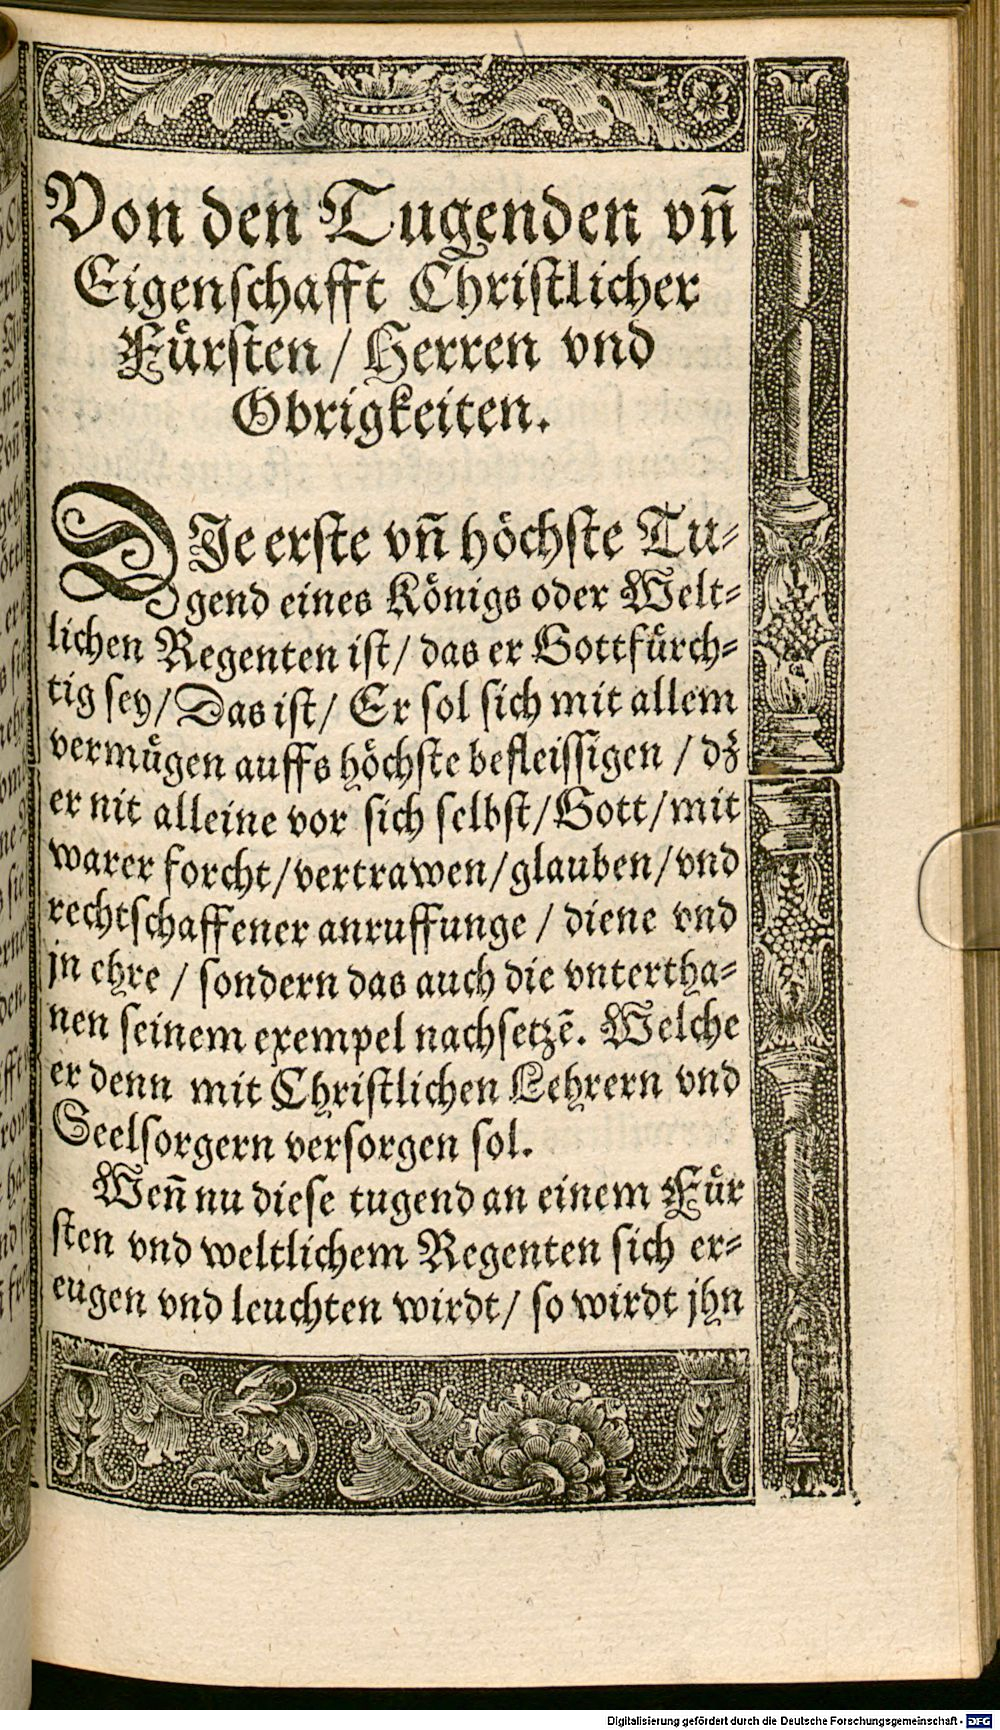 Von den Tugenden vñ
Eigenschafft Christlicher
Fürsten / Herren vnd
Obrigkeiten.
DIe erste vñ höchste Tu-
gend eines Königs oder Welt-
lichen Regenten ist / das er Gottfürch-
tig sey / Das ist / Er sol sich mit allem
vermügen auffs höchste befleissigen / dz
er nit alleine vor sich selbst / Gott / mit
warer forcht / vertrawen / glauben / vnd
rechtschaffener anruffunge / diene vnd
jn ehre / sondern das auch die vntertha-
nen seinem exempel nachsetzē. Welche
er denn mit Christlichen Lehrern vnd
Seelsorgern versorgen sol.
Weñ nu diese tugend an einem Für
sten vnd weltlichem Regenten sich er-
eugen vnd leuchten wirdt / so wirdt jhn
Digitalisierung gefördert durch die Deutsche Forschungsgemeinschaft - DFG